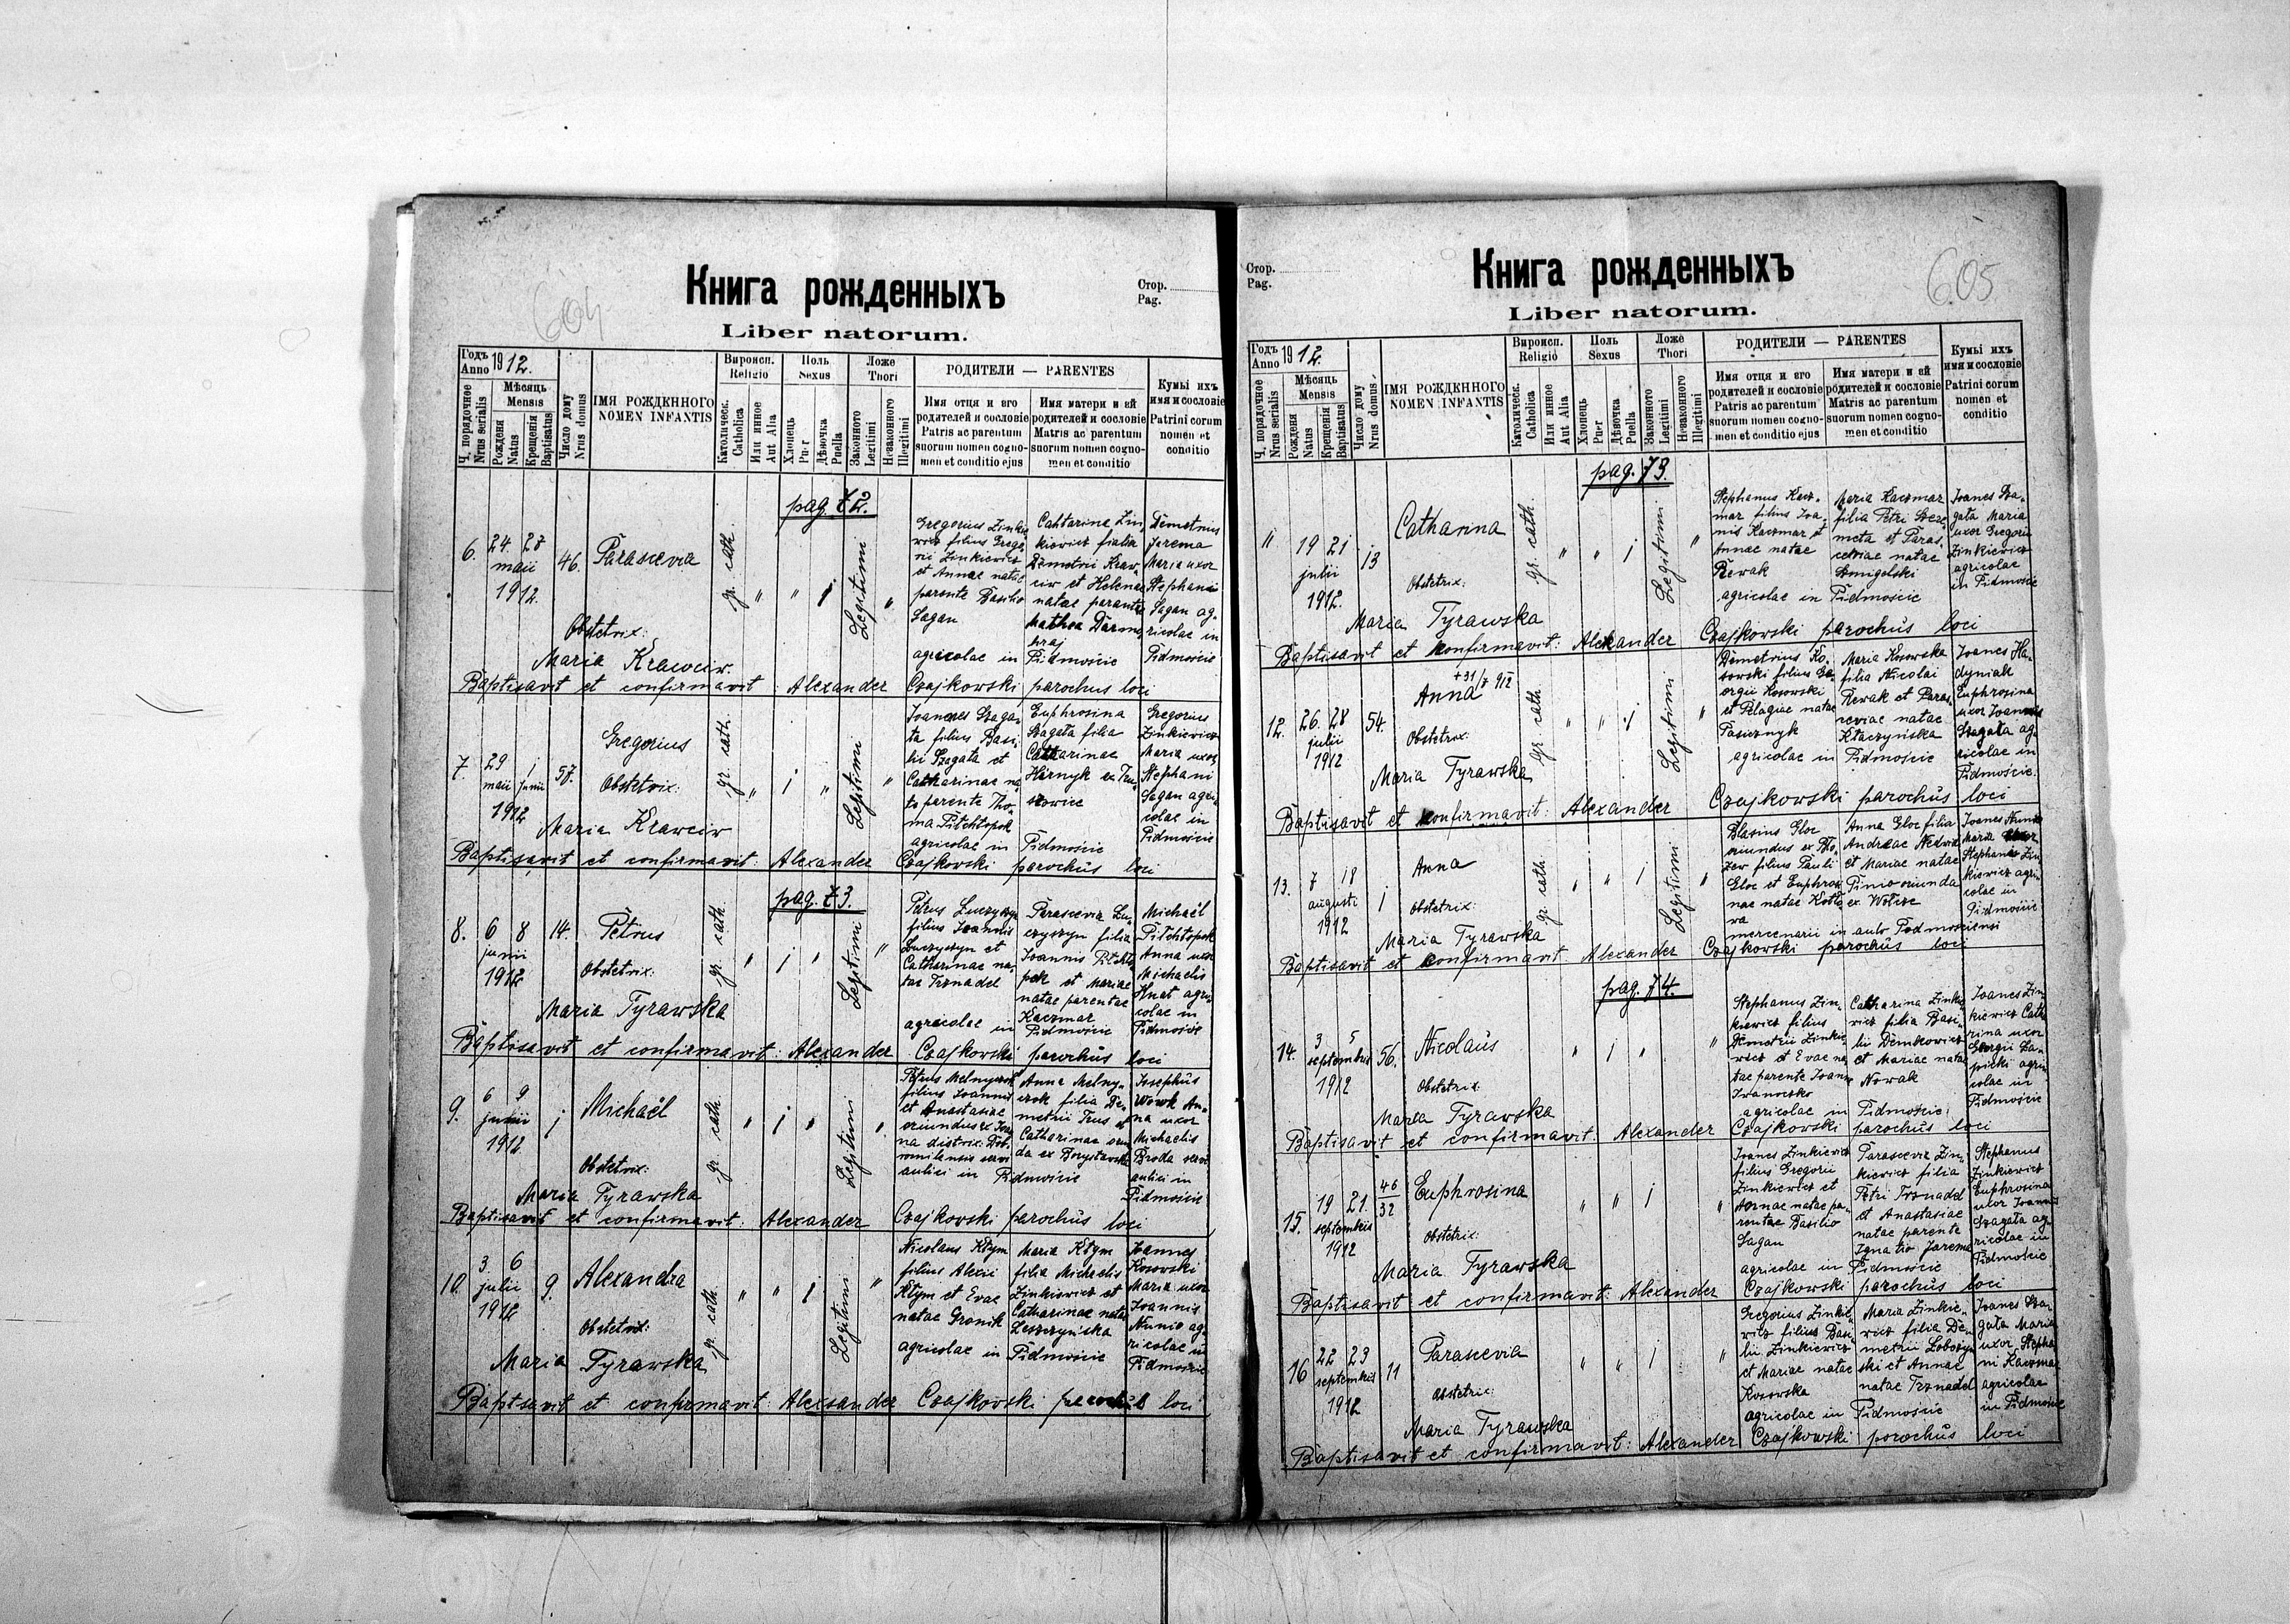 604
Книга рожденныхъ
Стор.
Pag.
Liber natorum.
Годъ
Anno 1912.
Ч. порядочное
Nrus serialis
Мѣсяць
Mensis
Рожденя
Natus
Крещенія
Baptisatus
Число дому
Nrus domus
ІМЯ РОЖДКННОГО
NOMEN INFANTIS
Вироисп.
Religio
Католическ.
Catholica
Или инное
Aut Alia
Поль
Sexus
Хлопець
Puer
Дѣвочка
Puella
Ложе
Thori
Законного
Legitimi
Незаконного
Illegitimi
РОДИТЕЛИ — PARENTES
Имя отця и его
родителей и сословіе
Patris ac parentum
suorum nomen cogno-
men et conditio ejus
Имя матери и ей
родителей и сословіе
Matris ac parentum
suorum nomen cogno-
men et conditio
Кумы ихъ
имя и сословіе
Patrini corum
nomen et
conditio
pag. 72.
6.
24. 28
maii
1912.
46.
Parascevia
Obstetrix:
Maria Krawciw.
gr. cath.
Legitimi
Gregorius Zinkie-
wicz filius Grego-
rii Zinkiewicz
et Annae natae
parente Basilio
Sagan
agricolae in
Cahtarina Zin-
kiewicz fialia
Demetrii Kraw-
ciw et Helenae
natae parente
Mathea Darmo-
hraj
Pidmoście
Demetrius
Jarema
Maria uxor
Stephani
Sagan ag-
ricolae in
Pidmoście
Baptisavit et confirmavit Alexander Czajkowski parochus loci
7.
29 1
maii junii
1912
57.
Gregorius
Obstetrix:
Maria Krawciw
gr. cath.
Legitimi
Joannes Szaga-
ta filius Basi-
lii Szagata et
Catharinae na-
ta parente Tho-
ma Pitchtopek
agricolae in
Euphrosina
Szagata filia
Catharinae
Hirnyk ex Tru-
szowice
Pidmoście
Gregorius
Zinkiewicz
Maria uxor
Stephani
Sagan agri-
colae in
Pidmoście
Baptisavit et confirmavit: Alexander Czajkowski parochus loci
pag. 73.
8.
6 8
junii
1912
14.
Petrus
Obstetrix:
Maria Tyrawska
gr. cath.
Legitimi
Petrus Łuczyszyn
filius Joannis
Łuczyszyn et
Catharinae na-
tae Trznadel
agricolae in
Parascevia Łu-
czyszyn filia
Joannis Pitchto-
pek et Mariae
natae parentae
Kaczmar
Pidmoście
Michaël
Pitchtopek
Anna uxor
Michaelis
Hnat agri-
colae in
Pidmoście
Baptisavit et confirmavit: Alexander Czajkowski parochus loci
9.
6 9
junii
1912
1
Michaël
Obstetrix:
Maria Tyrawska
gr. cath.
Legitimi
filius Joannis
et Anastasiae
aulici in Pidmoście
Anna Melny-
czok filia De-
metrii Trus et
Catharinae oriun-
da ex Borysławka
Josephus
Wowk An-
na uxor
Michaelis
Broda servi
aulici in
Pidmoście
Baptisavit et confirmavit: Alexander Czajkovski parochus loci
10.
3. 6
julii
1912
9.
Alexandra
Obstetrix:
Maria Tyrawska
gr. cath.
Legitimi
Nicolaus Kłym
filius Alexii
Kłym et Evae
natae Gronik
agricolae in
Maria Kłym
filia Michaelis
Zinkiewicz et
Catharinae natae
Leszczyńska
Pidmoście
Joannes
Kosovski
Maria uxor
Joannis
Nunio ag-
ricolae in
Pidmoście
Baptisavit et confirmavit: Alexsander Czajkovski parochus loci
Стор.
Pag.
Книга рожденныхъ
605
Liber natorum.
Годъ
Anno 1912.
Ч. порядочное
Nrus serialis
Мѣсяць
Mensis
Рожденя
Natus
Крещенія
Baptisatus
Число дому
Nrus domus
ІМЯ РОЖДКННОГО
NOMEN INFANTIS
Вироисп.
Religio
Католическ.
Catholica
Или инное
Aut Alia
Поль
Sexus
Хлопець
Puer
Дѣвочка
Puella
Ложе
Thori
Законного
Legitimi
Незаконного
Illegitimi
РОДИТЕЛИ — PARENTES
Имя отця и его
родителей и сословіе
Patris ac parentum
suorum nomen cogno-
men et conditio ejus
Имя матери и ей
родителей и сословіе
Matris ac parentum
suorum nomen cogno-
men et conditio
Кумы ихъ
имя и сословіе
Patrini corum
nomen et
conditio
pag. 73.
11
19 21
julii
1912.
13
Catharina
Obstetrix:
Maria Tyrawska
gr. cath.
Legitimi
Stephanus Kacz-
mar filius Joa-
nis Kaczmar et
Annae natae
Rewak
agricolae in
Maria Kaczmar
filia Petri Szere-
meta et Paras-
ceviae natae
Smigelski
Pidmoście
Joanes Sza-
gata Maria
uxor Gregorii
Zinkiewicz
agricolae
in Pidmoście
Baptisavit et konfirmavit: Alexander Czajkowski parochus loci
12.
26. 28
julii
1912
54.
+31/7 912
Anna
Obstetrix:
Maria Tyrawska
gr. cath.
Legitimi
Demetrius Ko-
sowski filius Ge-
orgii Kosowski
et Pelagiae natae
Pasicznyk
agricolae in
Maria Kosowska
filia Nicolai
Rewak et Paras-
ceviae natae
Kłaczyńska
Pidmoście
Joanes Ha-
dyniak
Euphrosina
uxor Joannis
Szagata ag-
ricolae in
Pidmoście.
Baptisavit et konfirmavit: Alexander Czajkowski parochus loci
13.
7 18
augusti
1912
1
Anna
Obstetrix:
Maria Tyrawska
gr. cath.
Legitimi
Blasius Gloc
filius Pauli
Gloc et Euphrosi-
nae natae
Anna Gloc filia
et Mariae natae
Joanes Nunio
Maria uxor
Stephanis Zin-
kiewicz agri-
colae in
Pidmoście
mercenarii in aulo Podmosciensi
Baptisavit et confirmavit Alexander Czajkovski parochus loci
pag. 74.
14.
3 5
septembris
1912
56.
Nicolaus
Obstetrix:
Maria Tyrawska
Stephanus Zin-
kiewicz filius
Demetrii Zinkie-
wicz et Evae na-
tae parente Joane
Iwanoczko
agricolae in
Catharina Zinkie-
wicz filia Basi-
lii Demkowicz
et Mariae natae
Nowak
Pidmoście
Joanes Zin-
kiewicz Catha-
rina uxor
Georgii Ła-
picki agri-
colae in
Pidmoście
Baptisavit et confirmavit: Alexander Czajkowski parochus loci
15.
19 21.
septembris
1912
46
32
Euphrosina
Obstetrix:
Maria Tyrawska
Joanes Zinkiewicz
filius Gregorii
Zinkiewicz et
Annae natae pa-
rentae Basilio
Sagan
agricolae in
Parascevia Zin-
kiewicz filia
Petri Trznadel
et Anastasiae
natae parente
Ignatio Jarema
Pidmoście
Stephanus
Zinkiewicz
Euphrosina
uxor Joannis
Szagata ag-
ricolae in
Pidmoście
Baptisavit et confirmavit: Alexander Czajkowski parochus loci
16
22 29
septembris
1912
11
Parascevia
Obstetrix:
Maria Tyrawska
Gregorius Zinkie-
wicz filius Basi-
lii Zinkiewicz
et Mariae natae
Kosowska
agricolae in
Maria Zinkie-
wicz filia De-
metrii Łobozyń-
ski et Annae
natae Trznadel
Pidmoście
Joanes Sza-
gata Maria
uxor Stepha-
ni Kaczmar
agricolae
in Pidmoście
Baptisavit et confirmavit: Alexander Czajkowski parochus loci